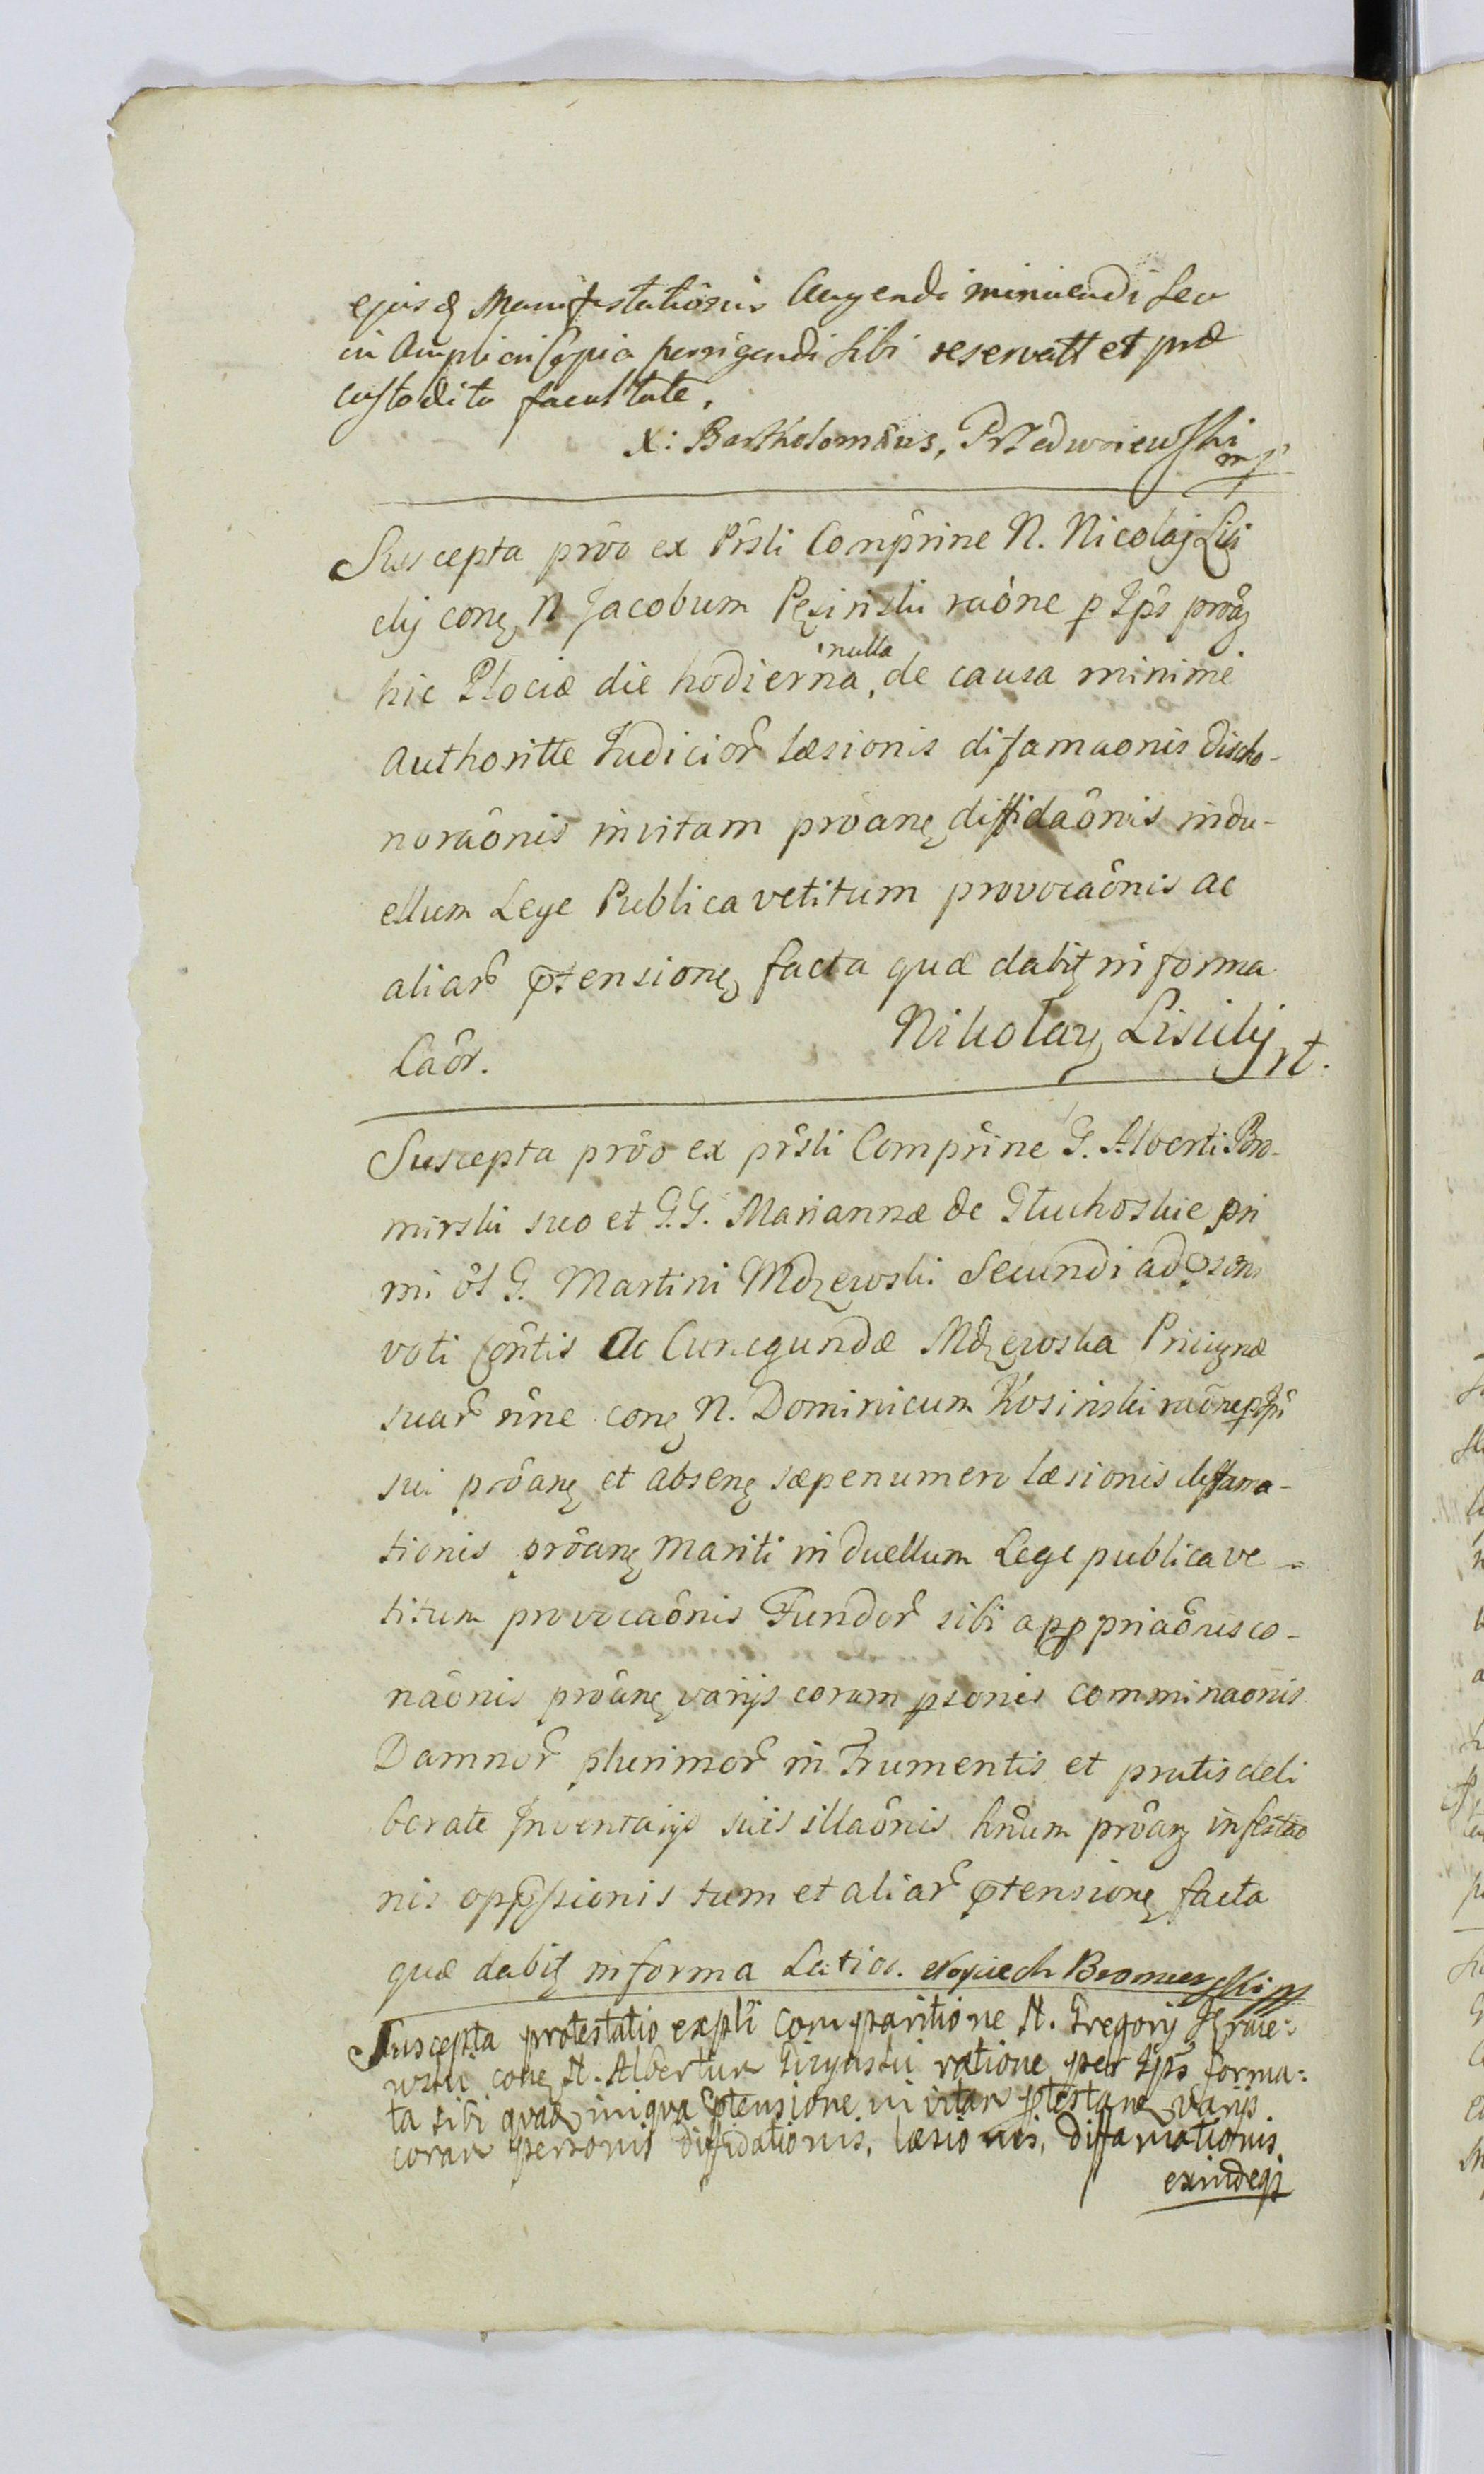 ejusq Manifestationis Augendi minuendi seu
in Ampliori Copia porrigendi sibi reservatt et præ
custodita facultate.
X: Bartholomæus, Przedwoiewski
mp
Suscepta prôo ex Prsli Comprine N. Nicolaj Lisi
ckij conq N Jacobum Pęsinski raône p Ips prônq
hic Plociæ die hodierna, nulla de causa minime
Authoritte Judicior læsionis difamaonis disho-
noraônis invitam prôanq diffidaônis indu-
ellum Lege Publica vetitum provocaônis ac
aliar prætensionq facta quæ dabit in forma
Laôr. Nikolay Lisicky
Suscepta prôo ex prsli Comprine G. Alberti Bro-
mirski suo et G.G. Mariannæ de Głuchoskie pri
mi ot G. Martini Mdzewski Secundi ad præsens
voti Contis Ac Cunegundæ Mdzewska Privignæ
suar nne conq N. Dominicum Kosinski raône p Ips
sui prôanq et absenq sæpenumero læsionis diffama-
tionis prôanq Mariti in duellum Lege publica ve-
titum provocaônis Fundor sibi appropriaônis co-
naônis prôanq varijs coram psonis comminaonis
Damnor plurimor in Frumentis et pratis deli
berate Inventarijs suis illaônis hnum prôanq infestao
nis oppressionis tum et aliar prætensionq facta
quæ dabit in forma Latior. Woyciech Bromierski mp
Suscepta protestatio expli comparitione N. Gregorij
conq N. Albertum Gizynski ratione per Ips forma:
ta sibi quadm iniqua prætensione in vitam ptestanq varijs
coram personis diffidationis, læsionis, diffamationis,
exindeqz